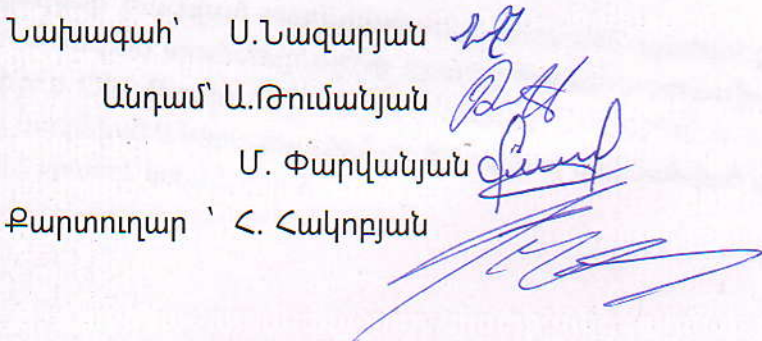 Նախագահ՝ Ս.Նազարյան
Անդամ՝ Ա.Թումանյան
Մ. Փարվանյան
Քարտուղար ՝ Հ. Հակոբյան